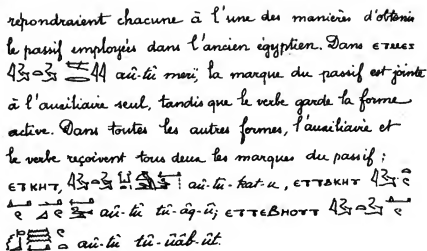 répondraient chacune à l'une des manières d'obtenir
le passif employées dans l'ancien égyptien. Dans ⲉⲧⲙⲉⲥ
aû-tû merî, la marque du passif est jointe
à l'auxiliaire seul, tandis que le verbe garde la forme
active. Dans toutes les autres formes, l'auxiliaire et
le verbe reçoivent tous deux les marques du passif :
ⲉⲧⲕⲏⲧ, aû-tû-kat-u, ⲉⲧⲧⲃⲕⲏⲧ
aû-tû tû-âq-û; ⲉⲧⲧⲉⲃⲏⲟⲩⲧ
aû-tû tû-ûâb-ût.